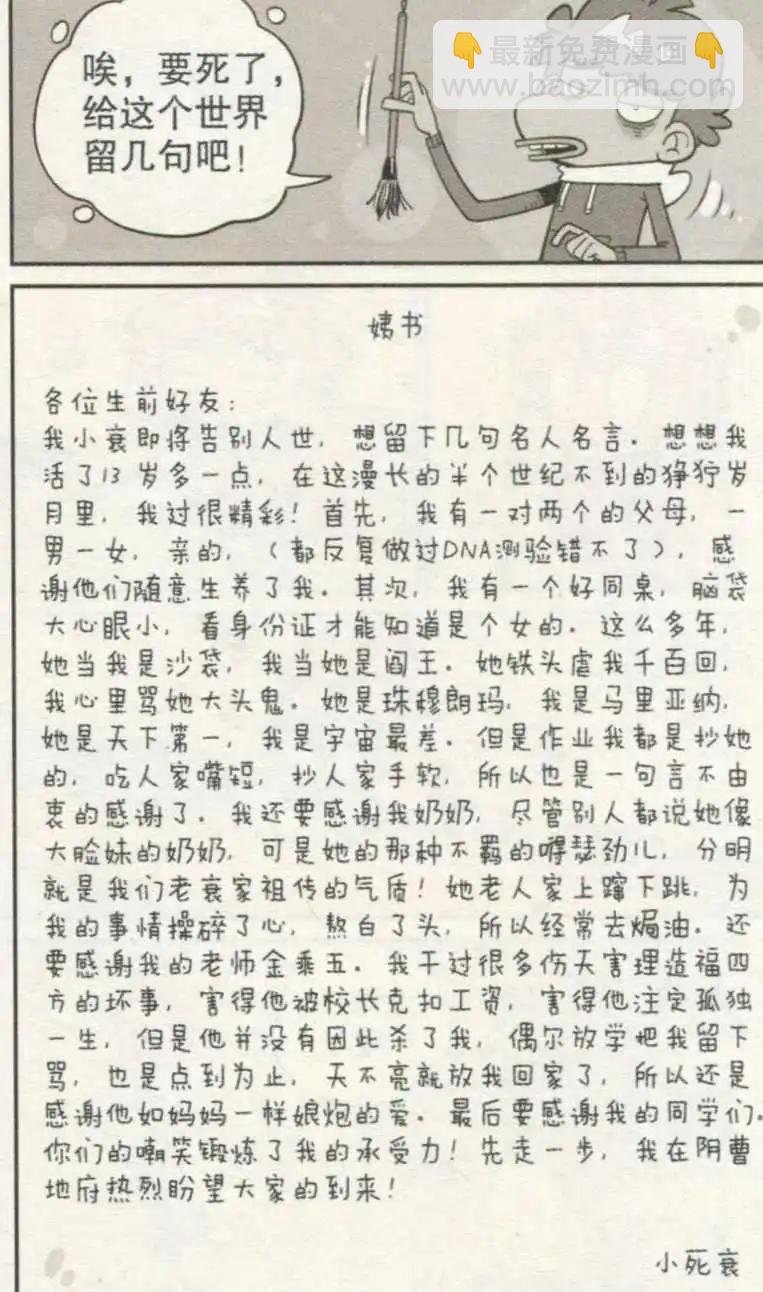 最新免费漫画
www.baozimh.com
唉，要死了，
给这个世界
留几句吧！
姨书
各位生前好友：
我小衰即将告别人世，想留下几句名人名言．想想我
活了13岁多一点，在这漫长的半个世纪不到的狰狞岁
月里，我过很精彩！首先，我有一对两个的父母，一
男一女，亲的，（都反复做过DNA测验错不了），感
谢他们随意生养了我。其次，我有一个好同桌，脑袋
大心眼小，看身份证才能知道是个女的．这么多年，
她当我是沙袋，我当她是阎王．她铁头虐我千百回，
我心里骂她大头鬼。她是珠穆朗玛，我是马里亚纳，
她是天下第一，我是宇宙最差．但是作业我都是抄她
的，吃人家嘴短，抄人家手软，所以也是一句言不由
衷的感谢了．我还要感谢我奶奶，尽管别人都说她像
大脸妹的奶奶，可是她的那种不羁的嘚瑟劲儿，分明
就是我们老衰家祖传的气质！她老人家上蹿下跳，为
我的事情操碎了心，熬白了头，所以经常去焗油．还
要感谢我的老师金乘五．我干过很多伤天害理造福四
方的坏事，害得他被校长克扣工资，害得他注定孤独
一生，但是他并没有因此杀了我，偶尔放学把我留下
骂，也是点到为止，天不亮就放我回家了，所以还是
感谢他如妈妈一样娘炮的爱．最后要感谢我的同学们．
你们的嘲笑锻炼了我的承受力！先走一步，我在阴曹
地府热烈盼望大家的到来！
小死衰